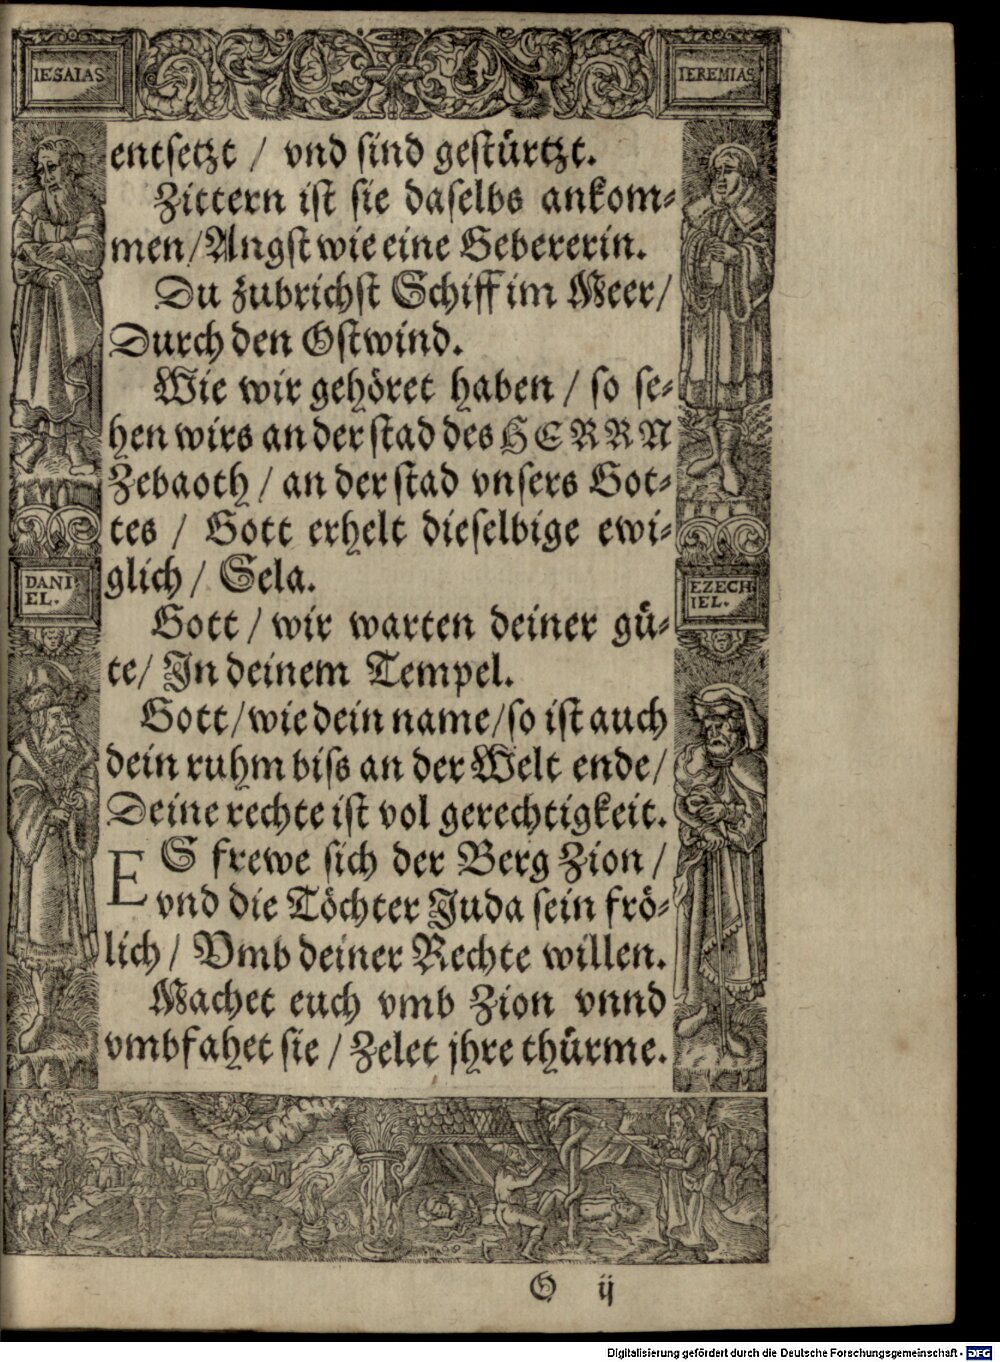 IESAIAS
IEREMIAS
entsetzt / vnd sind gestürtzt.
Zittern ist sie daselbs ankom-
men/Angst wie eine Gebererin.
Du zubrichst Schiff im Meer/
Durch den Ostwind.
Wie wir gehöret haben / so se-
hen wirs an der stad des HERRN
Zebaoth / an der stad vnsers Got-
tes / Gott erhelt dieselbige ewi-
glich / Sela.
DANI
EL.
EZECH
IEL.
Gott / wir warten deiner gü-
te/ In deinem Tempel.
Gott/wie dein name/so ist auch
dein ruhm biss an der Welt ende/
Deine rechte ist vol gerechtigkeit.
ES frewe sich der Berg Zion /
vnd die Töchter Juda sein frö-
lich / Vmb deiner Rechte willen.
Machet euch vmb Zion vnnd
vmbfahet sie / Zelet jhre thürme.
G ij
Digitalisierung gefördert durch die Deutsche Forschungsgemeinschaft - DFG